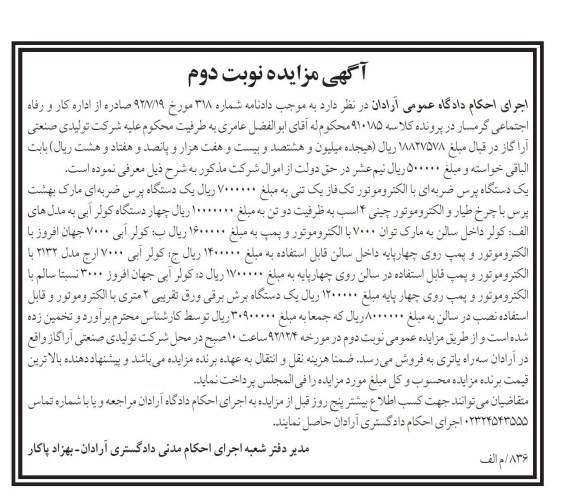 آگهی مزایده نوبت دوم
اجرای احکام دادگاه عمومی آرادان در نظر دارد به موجب دادنامه شماره ۳۱۸ مورخ ۹۲/۷/۱۹ صادره از اداره کار و رفاه
اجتماعی گرمسار در پرونده کلاسه ۹۱۰۱۸۵ محکوم له آقای ابوالفضل عامری به طرفیت محکوم علیه شرکت تولیدی صنعتی
آرا گاز در قبال مبلغ ۱۸۸۲۷۵۷۸ ریال (هیجده میلیون و هشتصد و بیست و هفت هزار و پانصد و هفتاد و هشت ریال) بابت
الباقی خواسته و مبلغ ۵۰۰۰۰۰ ریال نیم عشر در حق دولت از اموال شرکت مذکور به شرح ذیل معرفی نموده است.
یک دستگاه پرس ضربه‌ای با الکتروموتور تک فاز یک تنی به مبلغ ۷۰۰۰۰۰۰ ریال یک دستگاه پرس ضربه‌ای مارک بهشت
پرس با چرخ طیار و الکتروموتور چینی ۴ اسب به ظرفیت دو تن به مبلغ ۱۰۰۰۰۰۰۰ ریال چهار دستگاه کولر آبی به مدل های
الف: کولر داخل سالن به مارک توان ۷۰۰۰ با الکتروموتور و پمپ به مبلغ ۱۶۰۰۰۰۰ ریال ب: کولر آبی ۷۰۰۰ جهان افروز با
الکتروموتور و پمپ روی چهارپایه داخل سالن قابل استفاده به مبلغ ۱۴۰۰۰۰۰ ریال ج: کولر آبی ۷۰۰۰ ارج مدل ۲۱۳۲ با
الکتروموتور و پمپ قابل استفاده در سالن روی چهارپایه به مبلغ ۱۷۰۰۰۰۰ ریال د: کولر آبی جهان افروز ۳۰۰۰ نسبتا سالم با
الکتروموتور و پمپ روی چهار پایه مبلغ ۱۲۰۰۰۰۰ ریال یک دستگاه برش برقی ورق تقریبی ۲ متری با الکتروموتور و قابل
استفاده نصب در سالن به مبلغ ۸۰۰۰۰۰۰ ریال که جمعا به مبلغ ۳۰۹۰۰۰۰۰ ریال توسط کارشناس محترم برآورد و تخمین زده
شده است و از طریق مزایده عمومی نوبت دوم در مورخه ۹۲/۱۲/۴ ساعت ۱۰ صبح در محل شرکت تولیدی صنعتی آراگاز واقع
در آرادان سه راه یاتری به فروش می رسد. ضمنا هزینه نقل و انتقال به عهده برنده مزایده می‌باشد و پیشنهاددهنده بالاترین
قیمت برنده مزایده محسوب و کل مبلغ مورد مزایده را فی المجلس پرداخت نماید.
متقاضیان می توانند جهت کسب اطلاع بیشتر پنج روز قبل از مزایده به اجرای احکام دادگاه آرادان مراجعه و یا با شماره تماس
۰۲۳۲۴۵۴۳۵۵۵ اجرای احکام دادگستری آرادان حاصل نمایند.
مدیر دفتر شعبه اجرای احکام مدنی دادگستری آرادان- بهزاد پاکار
۸۳۶/م الف